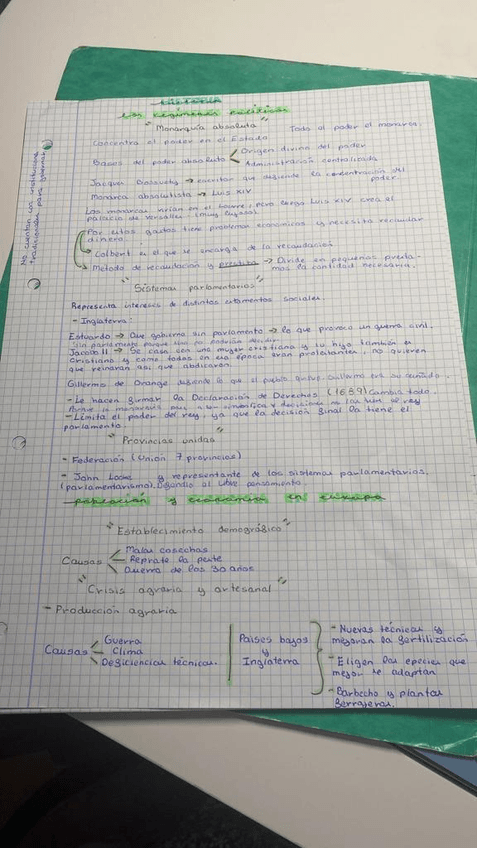 Historia
Los regímenes políticos
"Monarquía absoluta" Todo el poder el monarca.
Concentra el poder en el Estado
Bases del poder absoluto < Origen divino del poder
Administración centralizada
Jacques Bossuet → escritor que defiende la concentración del poder.
Monarca absolutista → Luis XIV
Los monarcas vivían en el louvre, pero luego Luis XIV crea el
palacio de Versalles (muy lujoso)
Por estos gastos tiene problemas económicos y necesita recaudar
dinero
Colbert es el que se encarga de la recaudación
Método de recaudación y → Divide en pequeños presta-
mos la cantidad necesaria.
No cuentan con instituciones
tradicionales para gobernar
"Sistemas parlamentarios"
Representa intereses de distintos estamentos sociales.
- Inglaterra:
Estuardo → Que gobierna sin parlamento → lo que provoca un guerra civil.
Sin parlamento porque uno no podrían decidir
Jacobo II → Se casa con una mujer cristiana y su hijo también es
cristiano y como todos en esa época eran protestantes, no quieren
que reinaran así que abdicaron.
Guillermo de Orange defiende lo que el pueblo quiere. Guillermo era su cuñado.
- Le hacen firmar la Declaración de Derechos (1689) Cambia todo.
- Limita el poder del rey, ya que la decisión final la tiene el
parlamento.
"Provincias unidas"
- Federación (Unión 7 provincias)
- John Locke y representante de los sistemas parlamentarios.
(parlamentarismo). Defendía el libre pensamiento.
población y económica en europa
"Establecimiento demográfico"
Causas < Malas cosechas
Reprate la peste
Guerra de los 30 años
"Crisis agraria y artesanal"
- Producción agraria
Causas < Guerra
Clima
Deficiencias técnicas.
Países bajos
y
Inglaterra
- Nuevas técnicas y
mejoran la fertilización
- Eligen las epecies que
mejor se adaptan
- Barbecho y plantas
forrajeras.